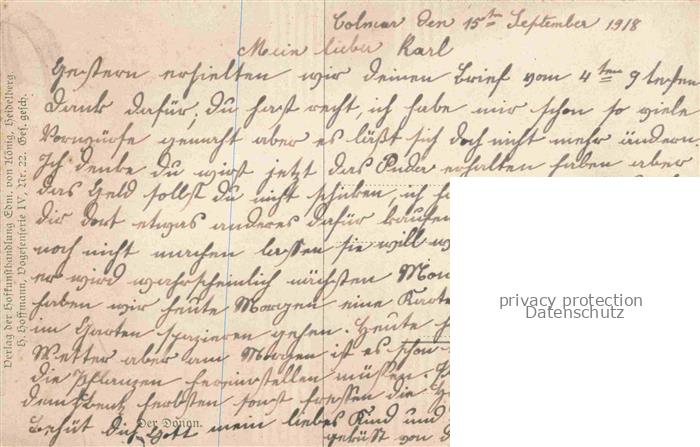 Colmar den 15ten September 1918
Mein lieber Karl
Gestern erhielten wir deinen Brief vom 4ten
Dank dafür, du hast recht, ich habe mir schon so viele
Vorwürfe gemacht aber es läßt sich doch nicht mehr ändern.
Ich denke du wirst jetzt das erhalten haben aber
das Geld sollst du nicht schicken, ich
dir dort etwas anderes dafür kaufen
noch nicht machen lassen sie will
er wird wahrscheinlich nächsten
haben wir heute Morgen eine Karte
im Garten spazieren gehen. Heute
Wetter aber am Morgen ist es schon
die Pflanzen hereinstellen müssen.
herbsten sonst fressen die
Behüt dich Gott mein liebes Kind und
geküßt von
Der Donon.
Verlag der Hofkunsthandlung Edm. von König, Heidelberg.
H. Hoffmann, Vogesenserie IV, Nr. 22. Ges. gesch.
privacy protection
Datenschutz